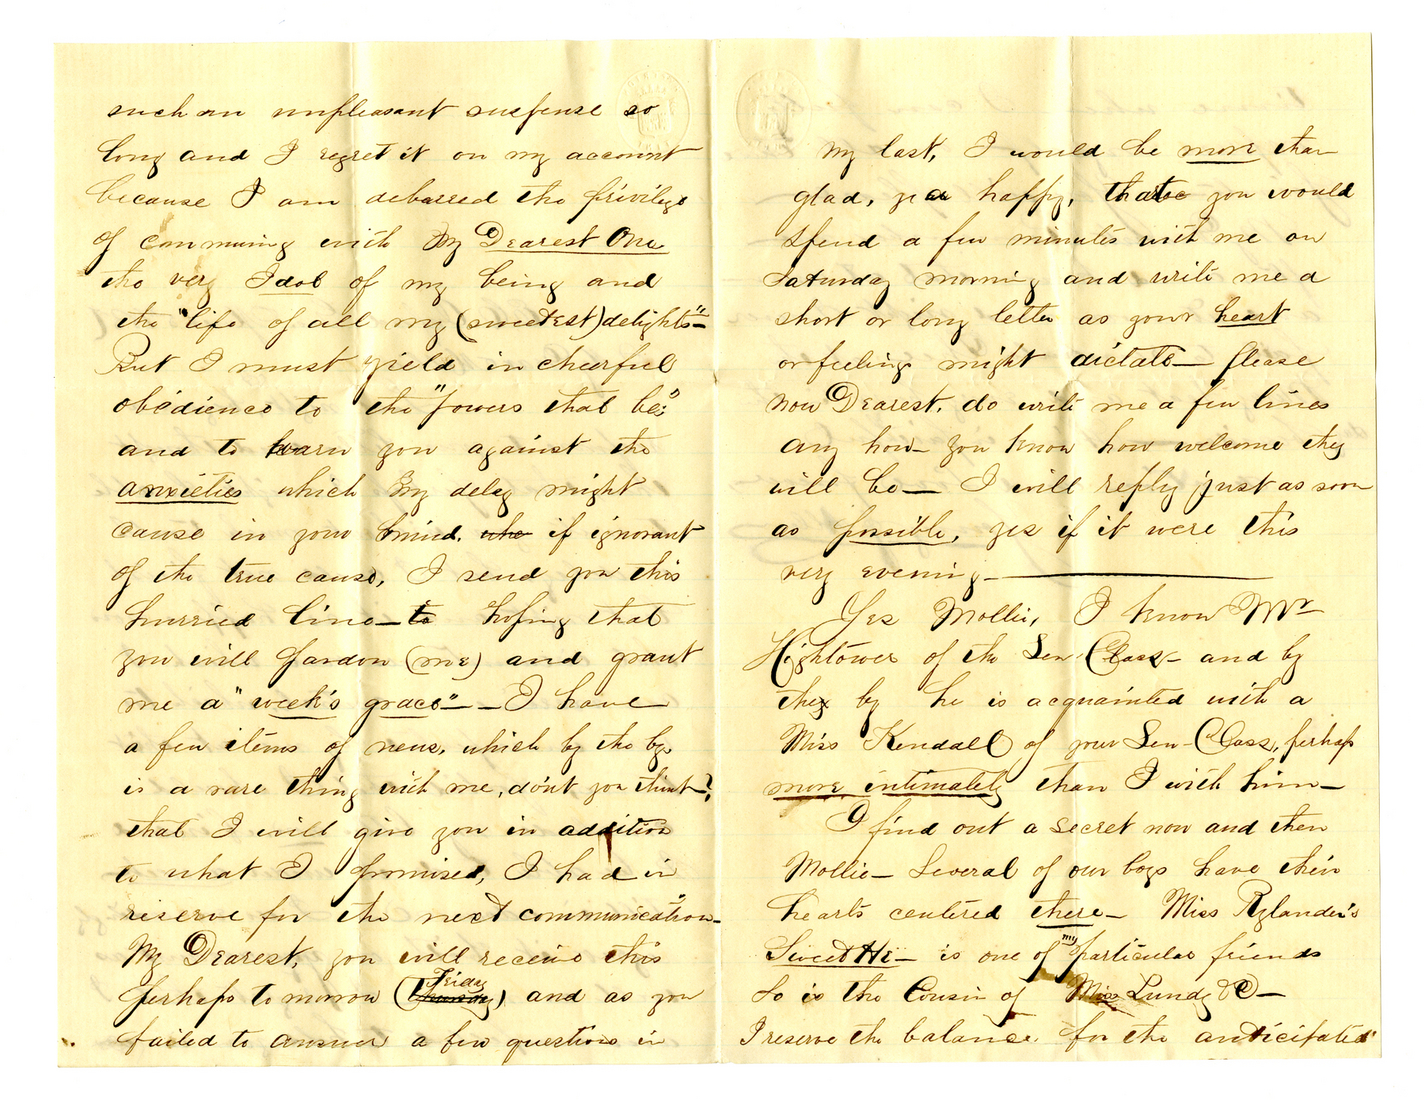 such an unpleasant suspense so
long and I regret it on my account
because I am debarred the privilege
of communing with My Dearest One
the very Idol of my being and
the "life of all my (sweetest) delights"—
But I must yield in cheerful
obedience to the "powers that be;"
and to warn you against the
anxieties which my delay might
cause in your mind, who if ignorant
of the true cause, I send you this
hurried line—to hoping that
you will pardon (me) and grant
me a "week's grace"—— I have
a few items of news, which by the by,
is a rare thing with me, dont you think—?
that I will give you in addition
to what I promised, I had in
reserve for the next communication—
My Dearest, you will receive this
perhaps to morrow (Thursday Friday) and as you
failed to answer a few questions in
my last, I would be more than
glad, yea happy, that you would
spend a few minutes with me on
Saturday morning and write me a
short or long letter as your heart
or feelings might dictate— please
now Dearest, do write me a few lines
any how— you know how welcome they
will be— I will reply just as soon
as possible, yes if it were this
very evening—
Yes Mollie, I know Mr
Hightower of the Sen Class— and by
the by he is acquainted with a
Miss Kendall of your Sen-Class, perhaps
more intimately than I with him—
I find out a secret now and then
Mollie— Several of our boys have their
hearts centered there— Miss Rylander's
Sweet Ht— is one of my particular friends
So is the Cousin of Miss Lundy &C—
I reserve the balance for the anticipated